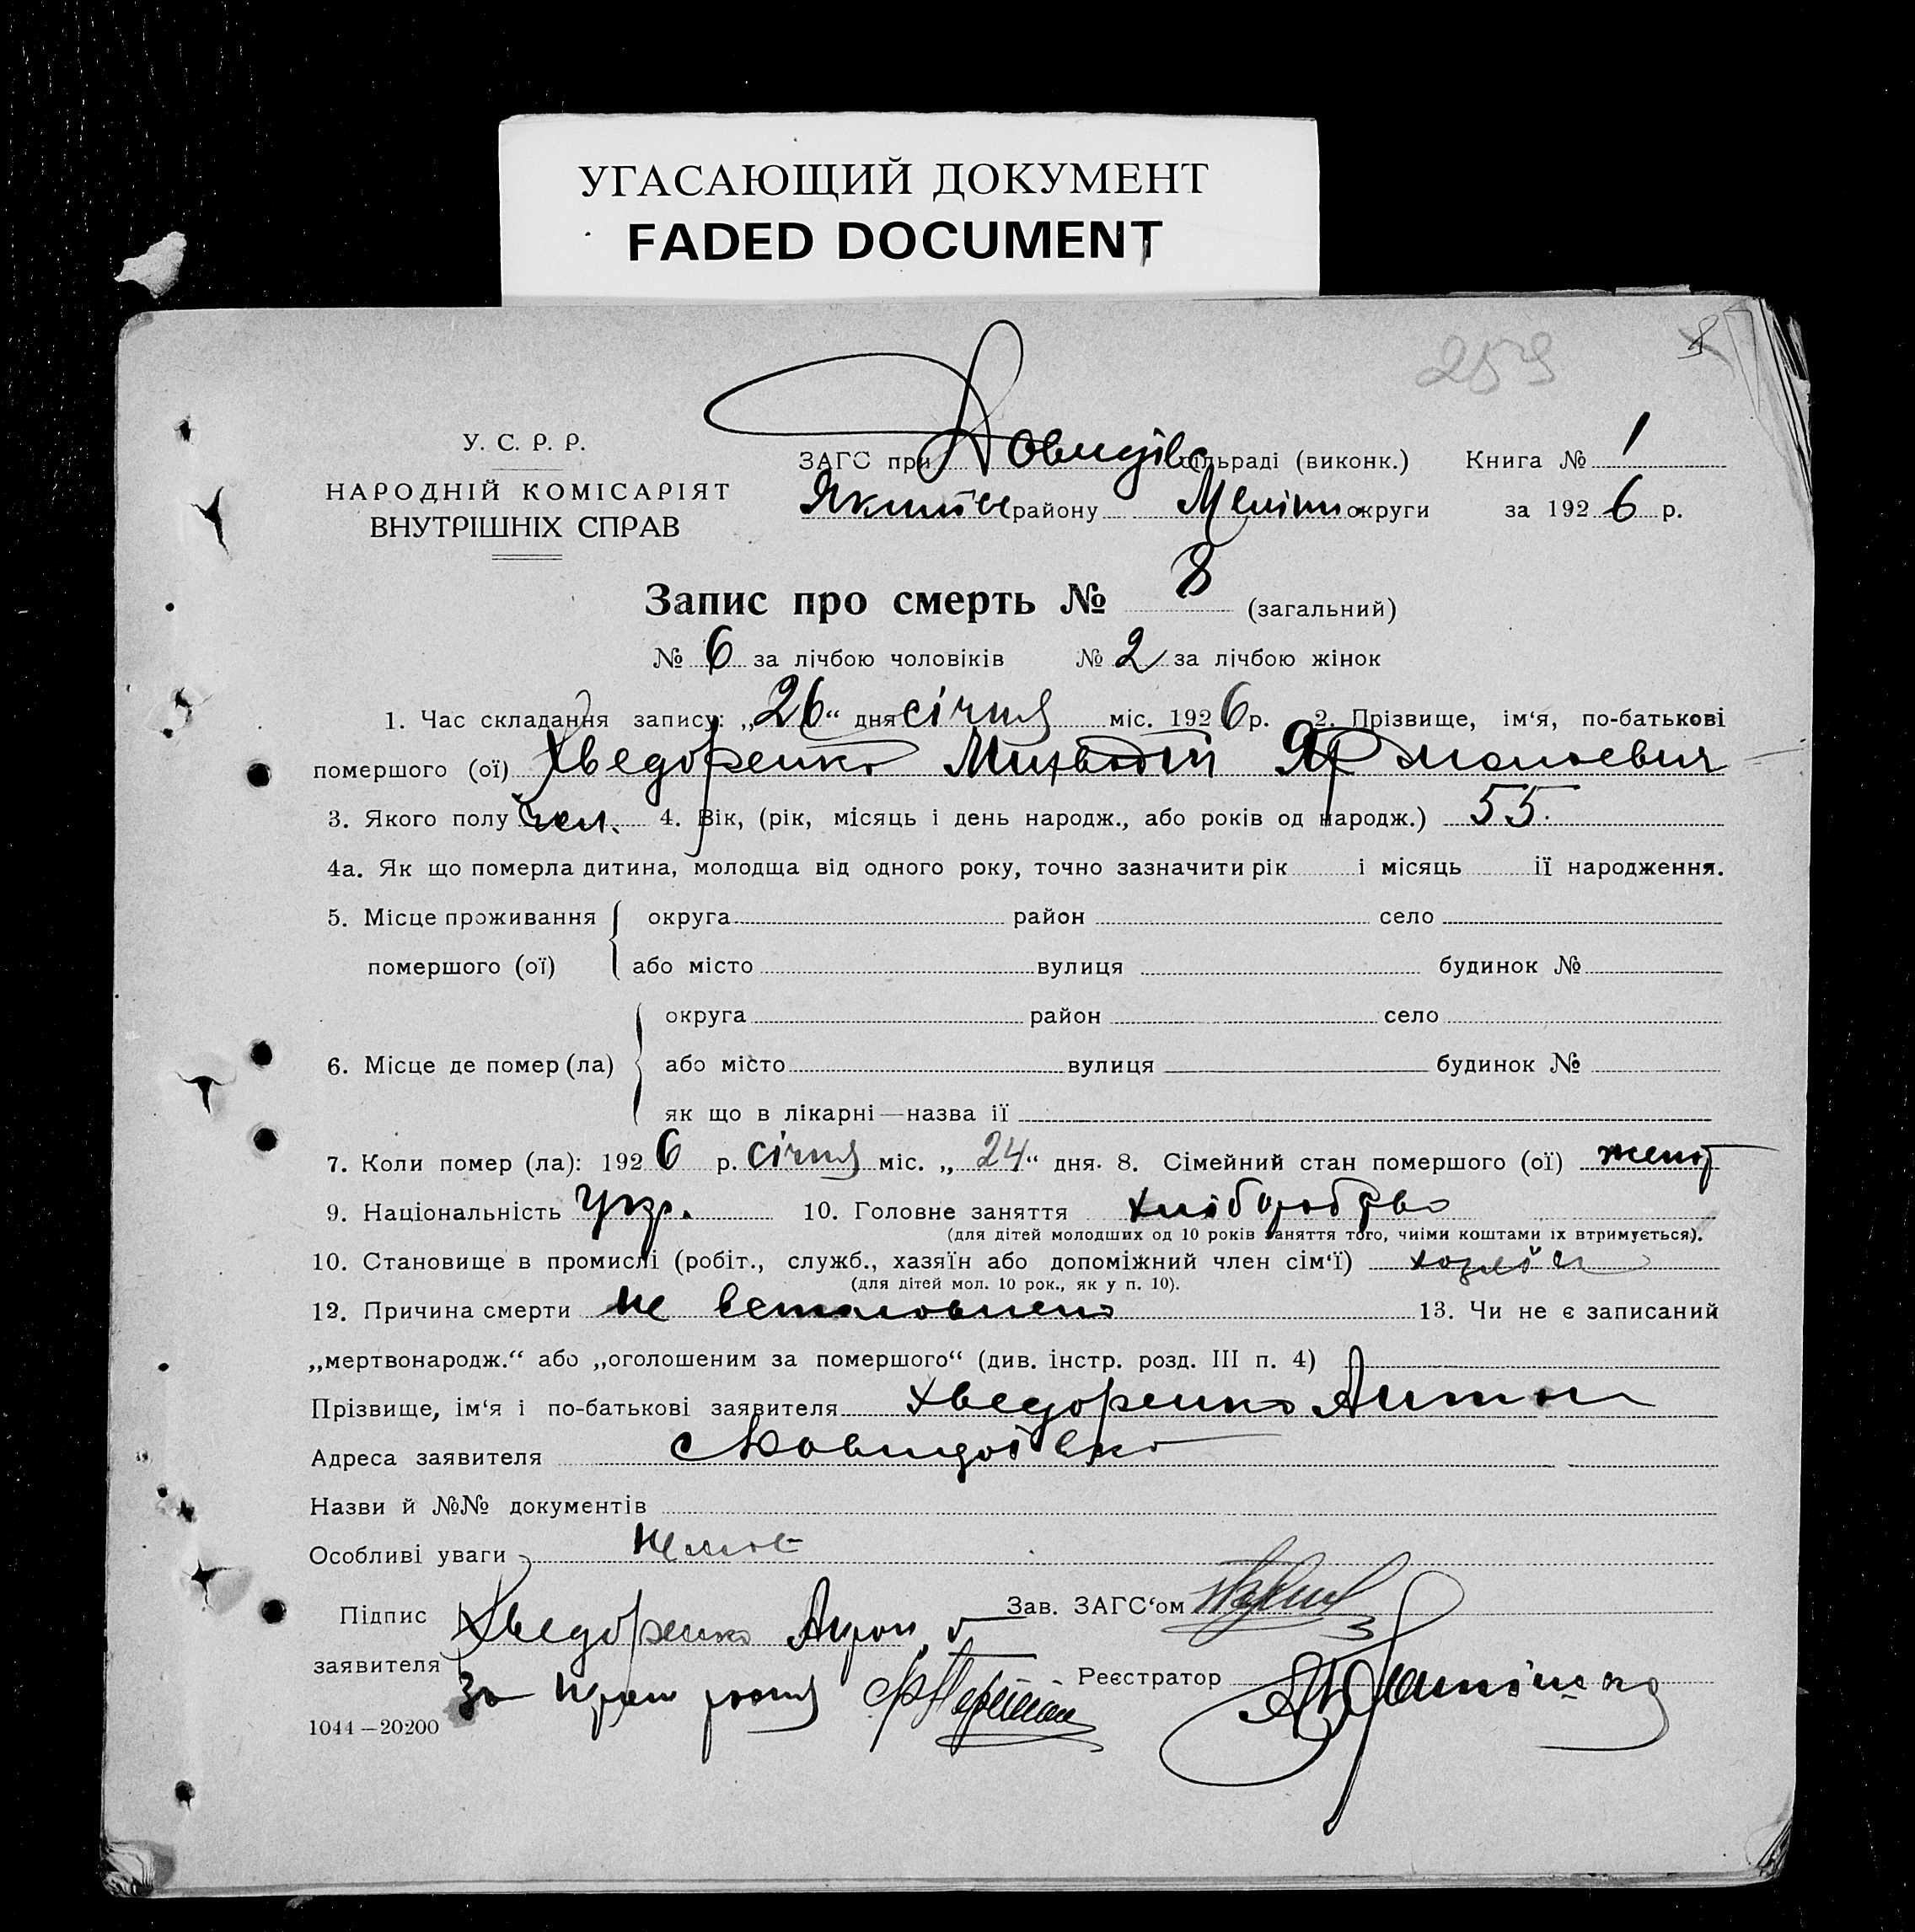 УГАСАЮЩИЙ ДОКУМЕНТ
FADED DOCUMENT
259
8
У. С. Р. Р.
НАРОДНІЙ КОМІСАРІЯТ
ВНУТРІШНІХ СПРАВ
ЗАГС при Довидівс сільраді (виконк.) Книга № 1
району Меліт округи за 1926 р.
Запис про смерть № 8 (загальний)
№ 6 за лічбою чоловіків № 2 за лічбою жінок
1. Час складання запису: „26“ дня січня міс. 1926 р. 2. Прізвище, ім‘я, по-батькові
помершого (ої) Хведоренко
3. Якого полу чол. 4. Вік, (рік, місяць і день народж., або років од народж.) 55.
4а. Як що померла дитина, молодща від одного року, точно зазначити рік і місяць ії народження.
5. Місце проживання округа район село
помершого (ої) або місто вулиця будинок №
округа район село
6. Місце де помер (ла) або місто вулиця будинок №
як що в лікарні—назва ії
7. Коли помер (ла): 1926 р. січня міс. „24“ дня. 8. Сімейний стан помершого (ої) женат
9. Національність укр. 10. Головне заняття хліборобство
(для дітей молодших од 10 років заняття того, чиіми коштами іх втримується).
10. Становище в промислі (робіт., служб., хазяїн або допоміжний член сім‘ї) хозяїн
(для дітей мол. 10 рок., як у п. 10).
12. Причина смерти не встановлено 13. Чи не є записаний
„мертвонародж.“ або „оголошеним за помершого“ (див. інстр. розд. III п. 4)
Прізвище, ім‘я і по-батькові заявителя Хведоренко Антон
Адреса заявителя с Довидовка
Назви й №№ документів
Особливі уваги немає
Підпис Хведоренко Антон Зав. ЗАГС‘ом
заявителя За Реєстратор
1044—20200